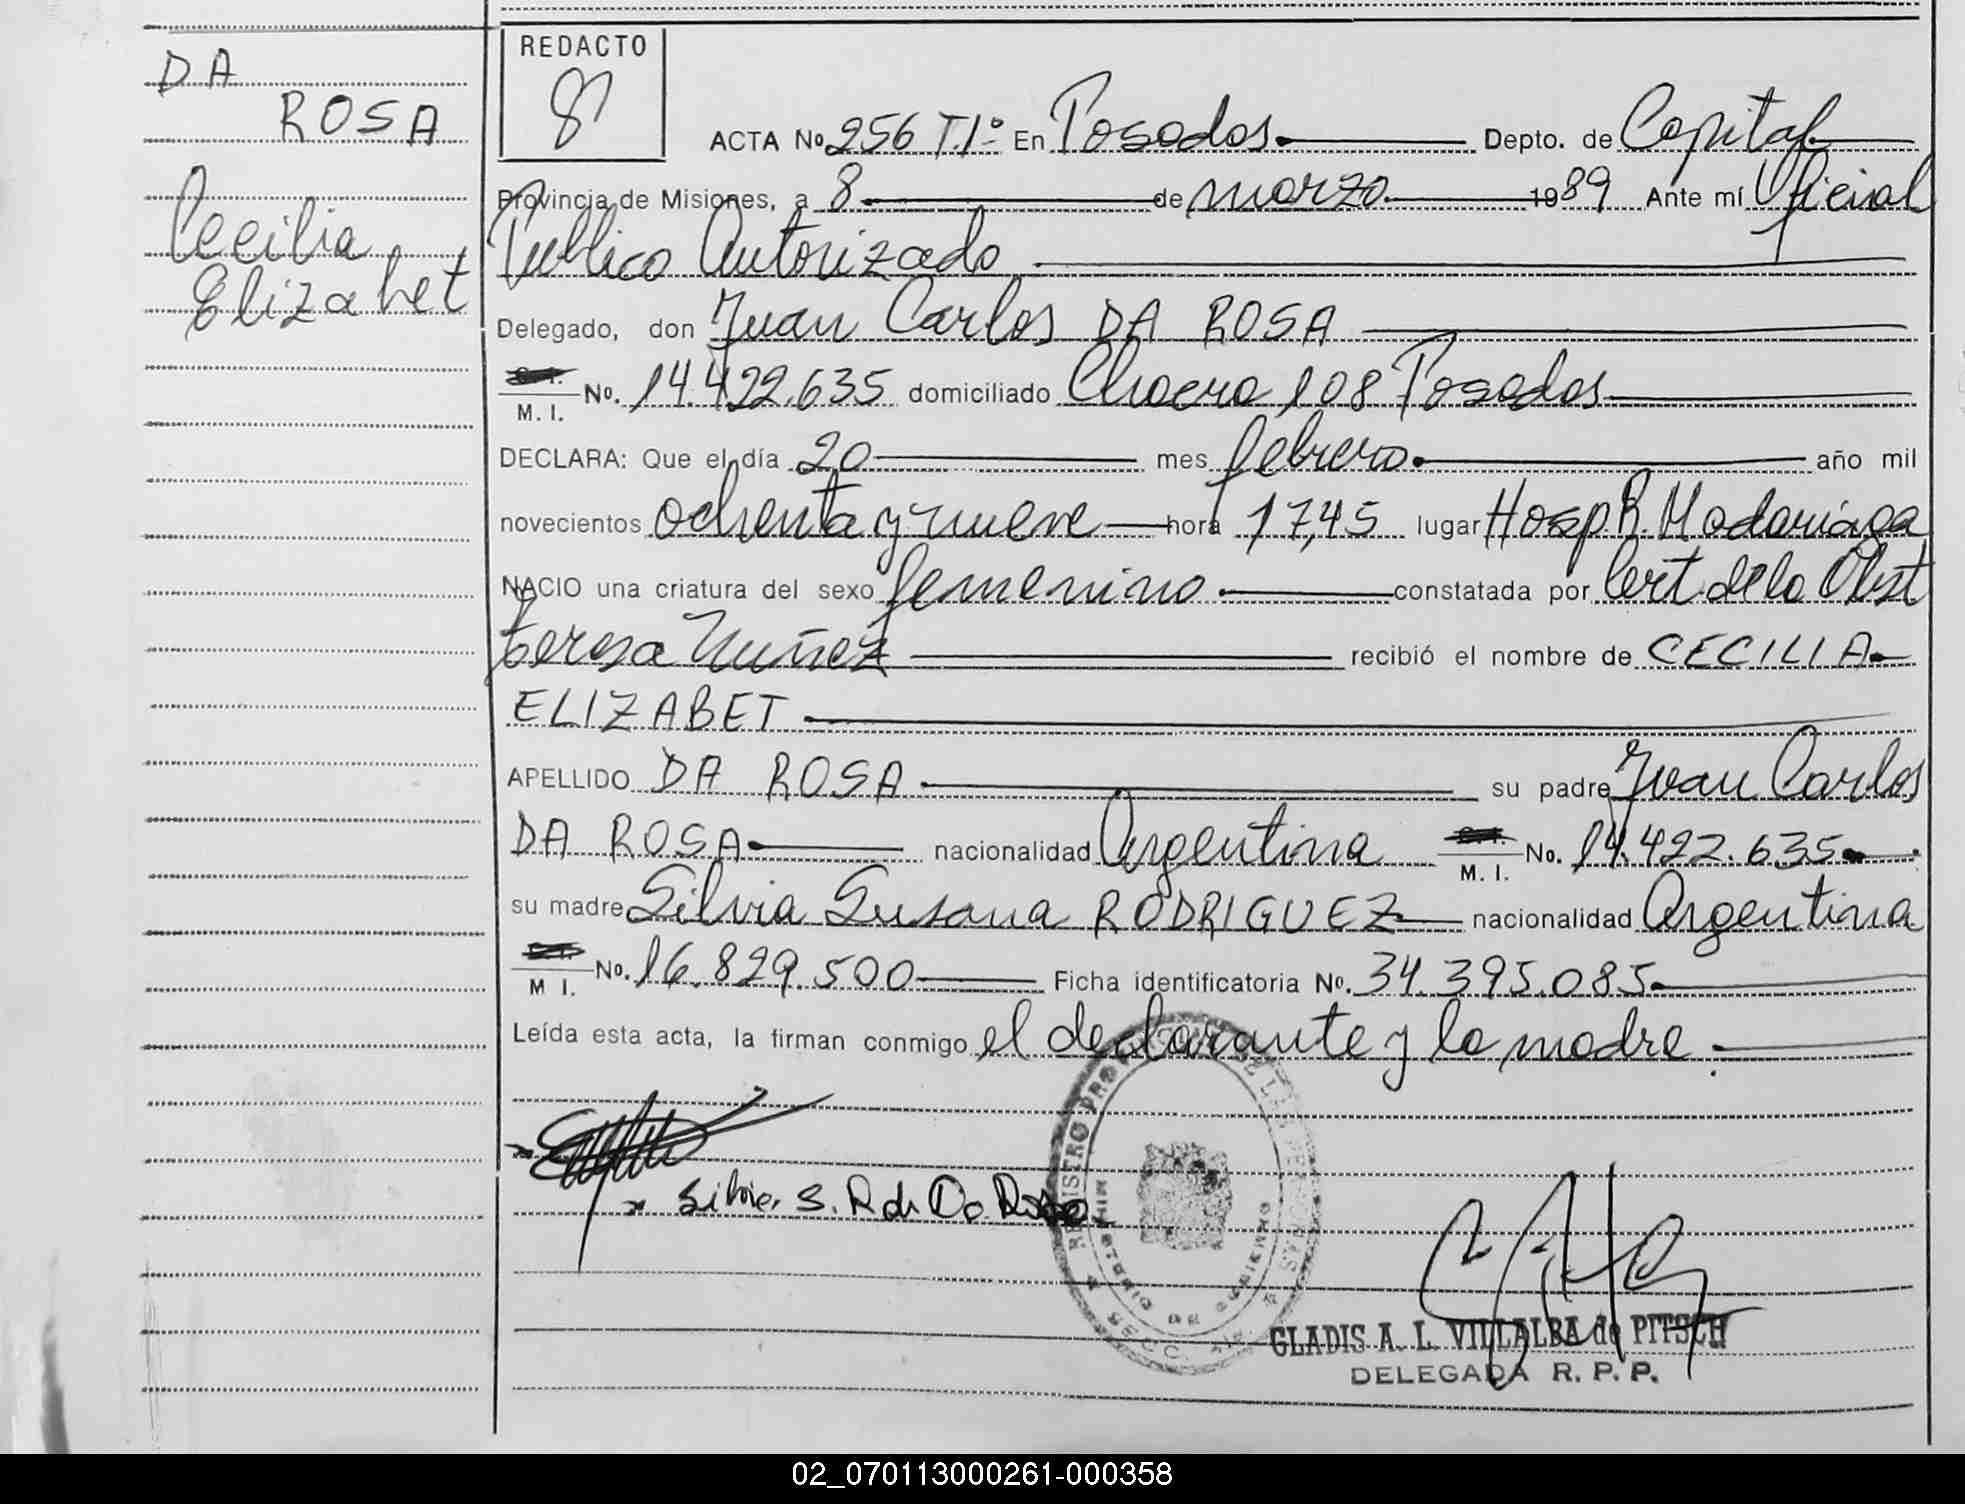 DA
ROSA
Cecilia
Elizabet
REDACTO
ACTA No 256 T.1º En Posadas Depto. de Capital
Provincia de Misiones, a 8 de marzo 1989 Ante mí Oficial
Publico Autorizado
Delegado, don Juan Carlos DA ROSA
M. I. No. 14.422.635 domiciliado Chacra 108 Posadas
DECLARA: Que el día 20 mes febrero año mil
novecientos ochenta y nueve hora 17,45 lugar Hosp. R. Madariaga
NACIO una criatura del sexo femenino constatada por Cert. de la Obst
teresa Nuñez recibió el nombre de CECILIA
ELIZABET
APELLIDO DA ROSA su padre Juan Carlos
DA ROSA nacionalidad Argentina M. I. No. 14.422.635
su madre Silvia Susana RODRIGUEZ nacionalidad Argentina
M I. No. 16.829.500 Ficha identificatoria No. 34.395.085
Leída esta acta, la firman conmigo el declarante y la madre.
Silvia S. R de Da Rosa
REGISTRO PROVINCIAL DE LAS PERSONAS
MINISTERIO DE GOBIERNO
SECC.
GLADIS A. L. VILLALBA de PITSCH
DELEGADA R. P. P.
02_070113000261-000358